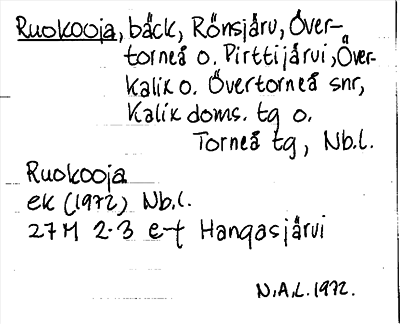 Ruokooja, bäck, Rönsjärv, Över-
torneå o. Pirttijärvi, Över-
Kalix o. Övertorneå snr,
Kalix doms. tg o.
Torneå tg, Nb.l.
Ruokooja
ek (1972) Nb.l.
27M 2-3 e-f Hangasjärvi
N.A.L. 1972.